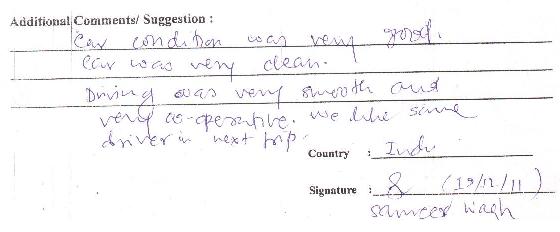 Additional Comments/ Suggestion :
Car condition was very good.
Car was very clean.
Driving was very smooth and
very co-operative. We like same
driver in next trip.
Country : India
Signature : (19/12/11)
sameer wagh